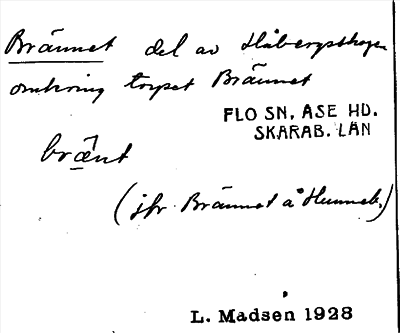 Brännet del av Håbergsskogen
omkring torpet Brännet
FLO SN. ÅSE HD.
SKARAB. LÄN
bränt
(jfr Brännet å Hunneb.)
L. Madsen 1928